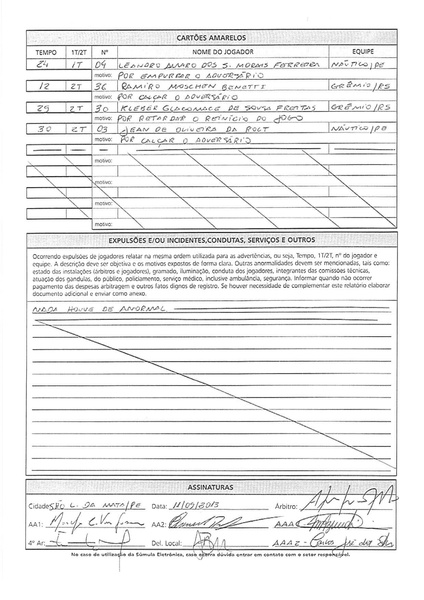 CARTÕES AMARELOS
TEMPO 1T/2T Nº NOME DO JOGADOR EQUIPE
24 1T 04 LEANDRO AMARO DOS S. MORAIS FERREIRA NÁUTICO/PE
motivo: POR EMPURRAR O ADVERSÁRIO
12 2T 36 RAMIRO MOSCHEN BENETTI GRÊMIO/RS
motivo: POR CALÇAR O ADVERSÁRIO
25 2T 30 KLEBER GIACOMACE DE SOUSA FREITAS GRÊMIO/RS
motivo: POR RETARDAR O REINÍCIO DO JOGO
30 2T 03 JEAN DE OLIVEIRA DA ROLT NÁUTICO/PE
motivo: POR CALÇAR O ADVERSÁRIO
motivo:
motivo:
motivo:
motivo:
EXPULSÕES E/OU INCIDENTES,CONDUTAS, SERVIÇOS E OUTROS
Ocorrendo expulsões de jogadores relatar na mesma ordem utilizada para as advertências, ou seja, Tempo, 1T/2T, nº do jogador e
equipe. A descrição deve ser objetiva e os motivos expostos de forma clara. Outras anormalidades devem ser mencionadas, tais como:
estado das instalações (árbitros e jogadores), gramado, iluminação, conduta dos jogadores, integrantes das comissões técnicas,
atuação dos gandulas, do público, policiamento, serviço médico, inclusive ambulância, segurança. Informar quando não ocorrer
pagamento das despesas arbitragem e outros fatos dignos de registro. Se houver necessidade de complementar este relatório elaborar
documento adicional e enviar como anexo.
NADA HOUVE DE ANORMAL
ASSINATURAS
Cidade: SÃO L. DA MATA/PE Data: 11/09/2013 Árbitro:
AA1: AA2: AAA1
4º Ar: Del. Local: AAA2 - Carlos José dos
No caso de utilização da Súmula Eletrônica, caso ocorra dúvida entrar em contato com o setor responsável.